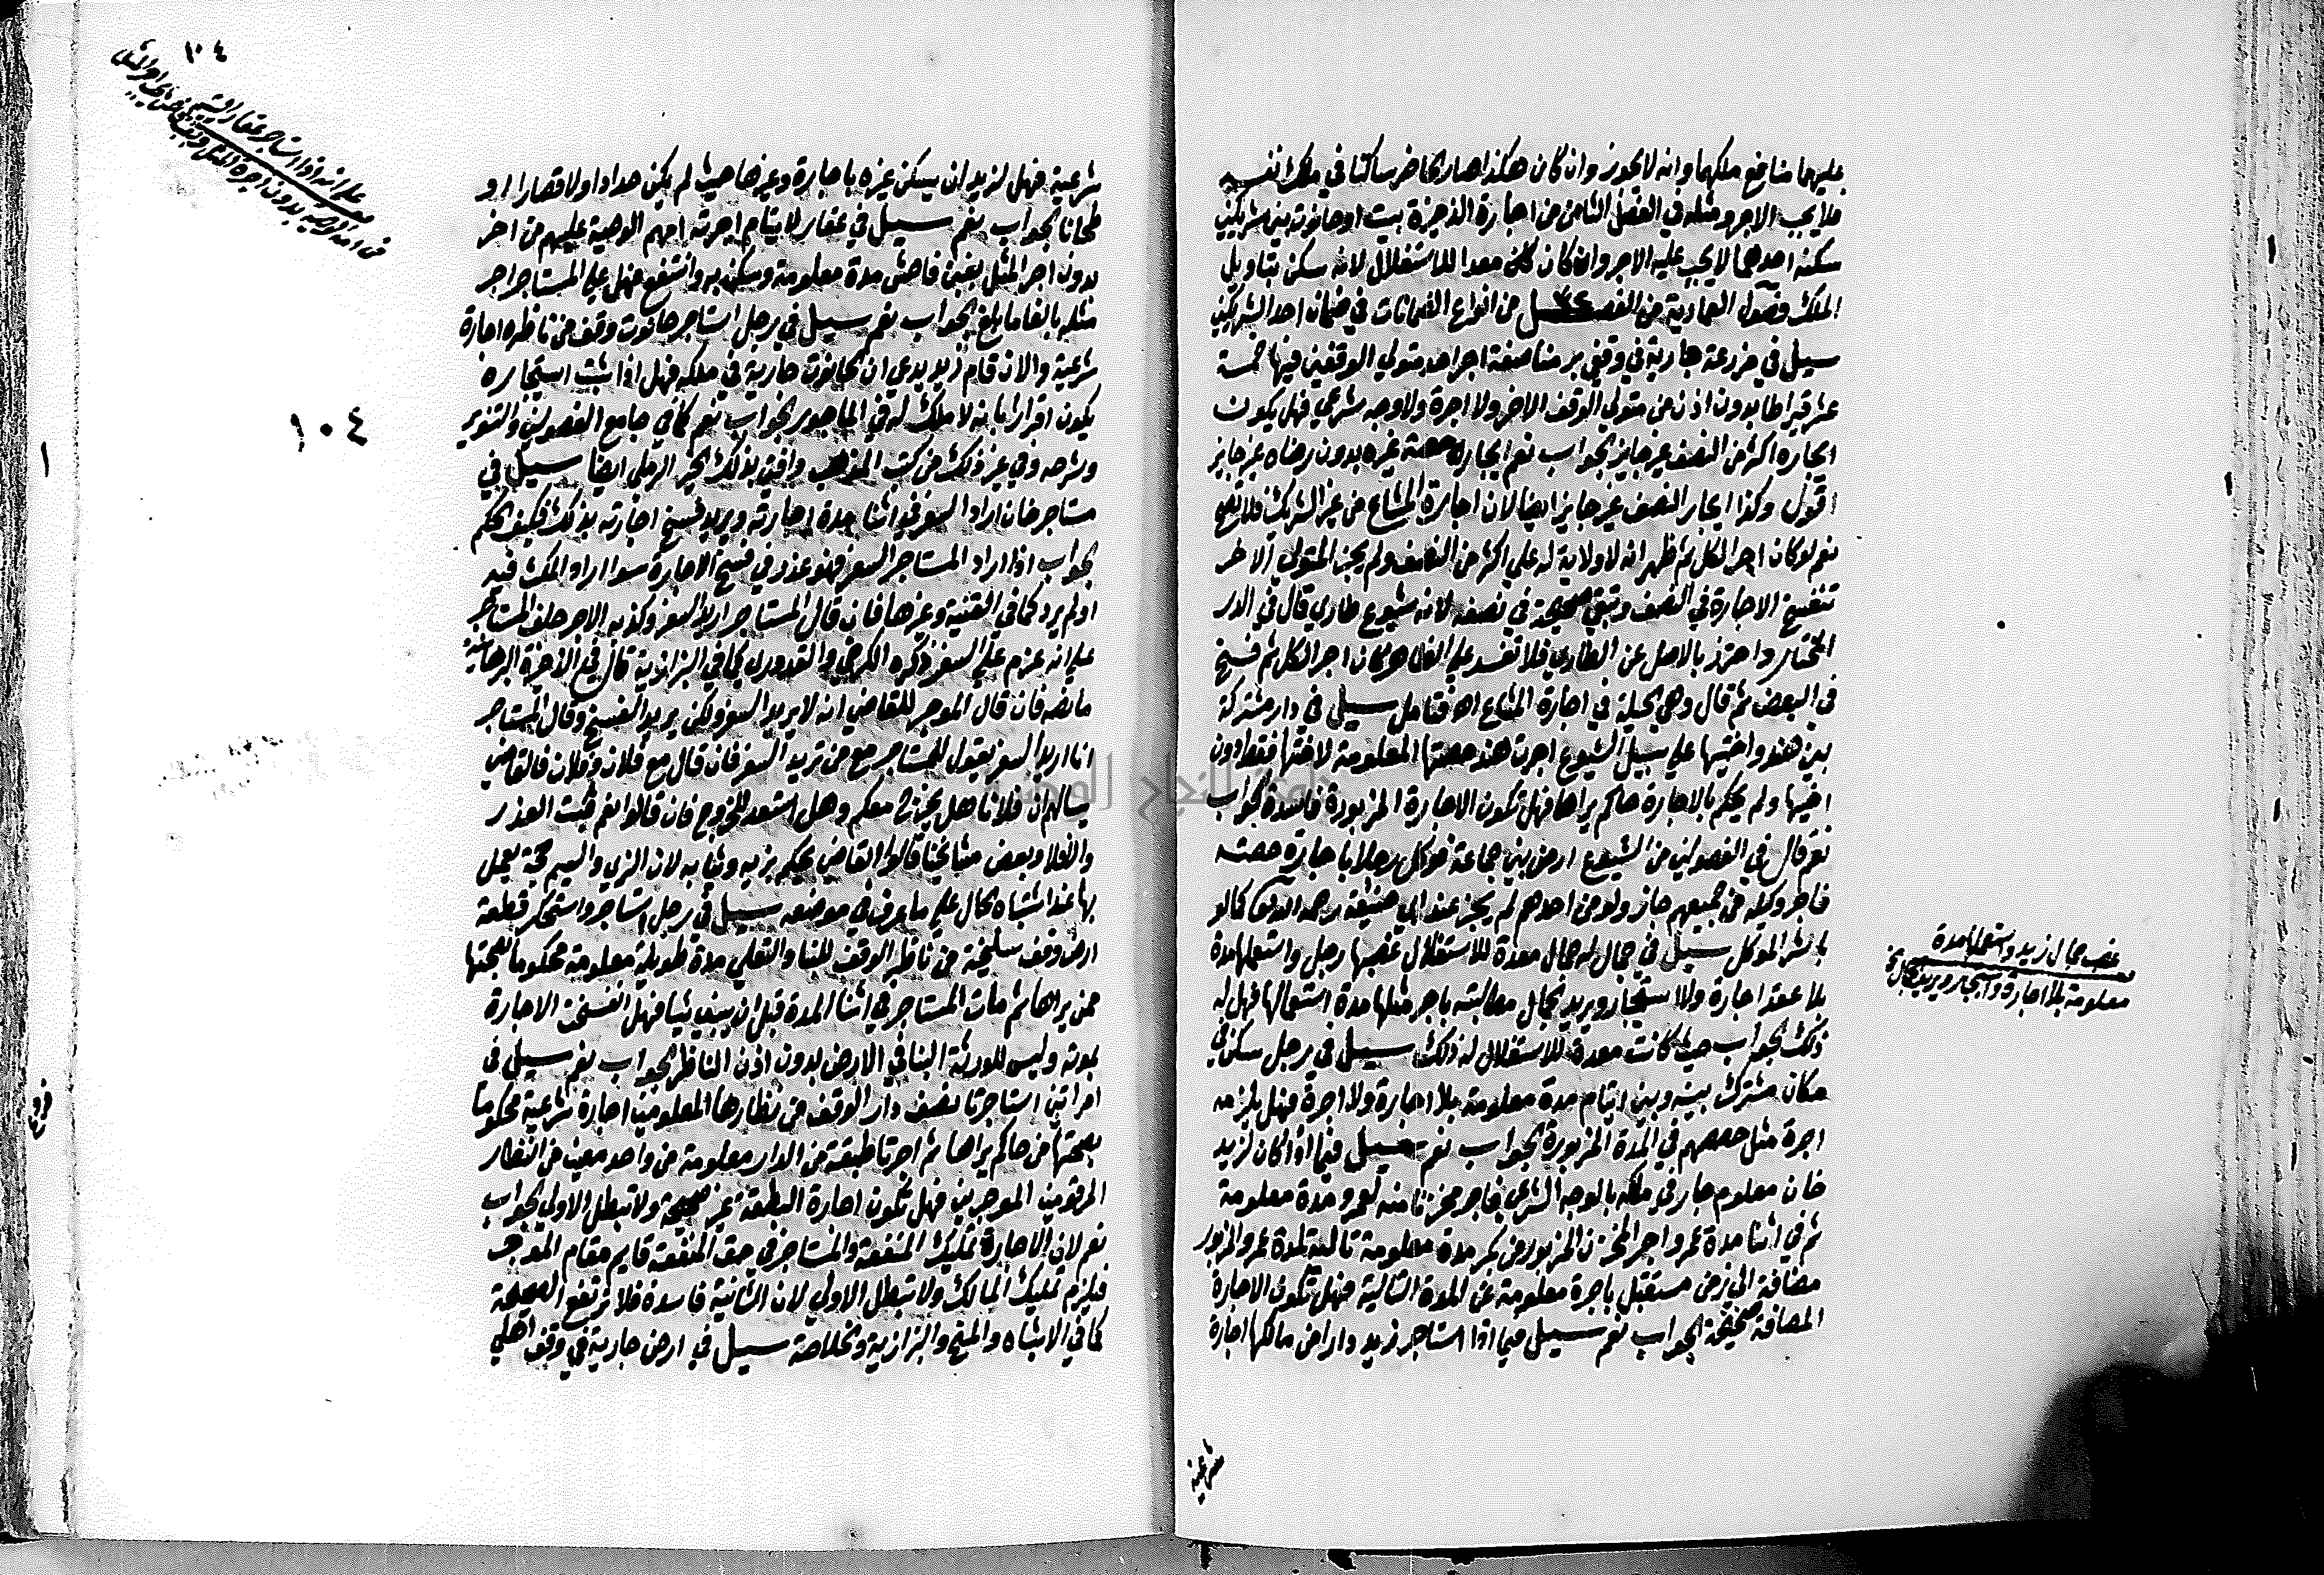 عليهما منافع ملكهما وانه لا يجوز وان كان هكذا صار الحاضر ساكنا في ملك نفسه
فلا يجب الاجر ومثله في الفصل الثامن من اجارة الذخيرة بيت او حانوت بين شريكين
سكنه احدهما لا يجب عليه الاجر وان كان معدا للاستغلال لانه سكن بتاويل
الملك وفصول العمادية من الفصل من انواع الضمانات في ضمان احد الشريكين
سيل في مزرعة جارية في وقفي بر مناصفة اجر احد متولي الوقفين فيها خمسة
عشر قيراطا بدون اذن من متولي الوقف الاخر ولا اجرة ولا وجه شرعي فهل يكون
ايجاره اكثر من النصف غير جايز الجواب نعم ايجاره حصة غيره بدون رضاه غير جايز
اقول وكذا ايجار النصف غير جايز ايضا لان اجارة المشاع من غير الشريك فلا تصح
نعم لو كان اجر الكل ثم ظهر انه لا ولاية له على اكثر من النصف ولم يجز المتولي الاخر
تنفسخ الاجارة في النصف وتبقى صحيحة في نصفه لانه شيوع طاري قال في الدر
المختار واحترز بالاصل عن الطاري فلا تفسد على الظاهر كان اجر الكل ثم فسخ
في البعض ثم قال وهي الحيلة في اجارة المشاع اه فتامل سيل في دار مشتركة
بين هند واختيها على سبيل الشيوع اجرت هند حصتها المعلومة لاختها فقط دون
اختها ولم يحكم بالاجارة حاكم يراها فهل تكون الاجارة المزبورة فاسدة الجواب
نعم قال في الفصولين من الشيوع ارض بين جماعة فوكل رجلا باجارة حصته
فاجر وكله من جميعهم جاز ولو من احدهم لم يجز عند ابي حنيفة رحمه الله كما لو
باشر الموكل سيل في جمال له جمال معدة للاستغلال غصبها رجل واستعملها مدة
بلا عقد اجارة ولا استيجار ويريد الجمال مطالبته باجر مثلها مدة استعمالها فهل له
ذلك الجواب حيث كانت معدة للاستغلال له ذلك سيل في رجل سكن في
مكان مشترك بينه وبين ايتام مدة معلومة بلا اجارة ولا اجرة فهل يلزمه
اجرة مثل حصصهم في المدة المزبورة الجواب نعم سيل فيما اذا كان لزيد
خان معلوم جار في ملكه بالوجه الشرعي فاجر مخزنا منه لعمرو مدة معلومة
ثم في اثنا مدة عمرو اجر المخزن المزبور من بكر مدة معلومة تالية لمدة عمرو المزبور
مضافة الى زمن مستقبل باجرة معلومة عن المدة التالية فهل تكون الاجارة
المضافة صحيحة الجواب نعم سيل فيما اذا استاجر زيد دارا من مالكها اجارة
شرعية
غصب جمال زيد واستعملها مدة
معلومة بلا اجارة ولا استيجار ويريد
١٠٤
شرعية فهل لزيد ان يسكن غيره باجارة وغيرها حيث لم يكن حدادا ولا قصارا او
طحانا الجواب نعم سيل في عقار لايتام اجرته امهم الوصية عليهم من اخر
بدون اجر المثل بغبن فاحش مدة معلومة وسكن به وانتفع فهل على المستاجر اجر
مثله بالغا ما بلغ الجواب نعم سيل في رجل استاجر حانوت وقف من ناظره اجارة
شرعية والان قام زيد يدعي ان الحانوت جارية في ملكه فهل اذا ثبت استيجاره
يكون اقرارا بانه لا ملك له في الماجور الجواب نعم كما في جامع الفصولين والتنوير
وشرحه وفي غير ذلك من كتب المذهب وافتى بذلك الخير الرملي ايضا سيل في
مستاجر خان اراد السفر في اثنا مدة اجارته ويريد فسخ اجارته بذلك فكيف الحكم
الجواب اذا اراد المستاجر السفر فهو عذر في فسخ الاجارة سوا اراد المكث فيه
او لم يرد كما في القنية وغيرها فان قال المستاجر اريد السفر وكذبه الاجر حلف المستاجر
على انه عزم على السفر ذكره الكرخي والقدوري كما في البزازية قال في الذخيرة البرهانية
ما نصه فان قال الموجر للقاضي انه لا يريد السفر ولكن يريد الفسخ وقال المستاجر
انا اريد السفر يقول للمستاجر مع من تريد السفر فان قال مع فلان وفلان فالقاضي
يسالهم ان فلانا هل يخرج معكم وهل استعد للخروج فان قالوا نعم ثبت العذر
والا فلا وبعض مشايخنا قالوا القاضي يحكم بزيه وثيابه لان الزي والسيم حجة يعمل
بها عند اشتباه الحال على ما عرف في موضعه سيل في رجل استاجر واستحكر قطعة
ارض وقف سليخة من ناظر الوقف للبنا والتعلي مدة طويلة معلومة محكوما بصحتها
ممن يراها ثم مات المستاجر في اثنا المدة قبل ان يبني شيا فهل انفسخت الاجارة
بموته وليس للورثة البنا في الارض بدون اذن الناظر الجواب نعم سيل في
امراتين استاجرتا نصف دار الوقف من نظارها المعلومين اجارة شرعية محكوما
بصحتها من حاكم يراها ثم اجرتا طبقة من الدار معلومة من واحد معين من النظار
المرقومين الموجرين فهل تكون اجارة الطبقة غير صحيحة ولا تبطل الاولى الجواب
نعم لان الاجارة تمليك المنفعة والمستاجر في حق المنفعة قايم مقام الموجر
فيلزم تمليك المالك ولا تبطل الاولى لان الثانية فاسدة فلا ترتفع الصحيحة
كما في الاشباه والمنح والبزازية والخلاصة سيل في ارض جارية في وقف اهلي
على انه اذا استاجر عقار اليتيم
من امه الوصية بدون اجرة المثل
١٠٤